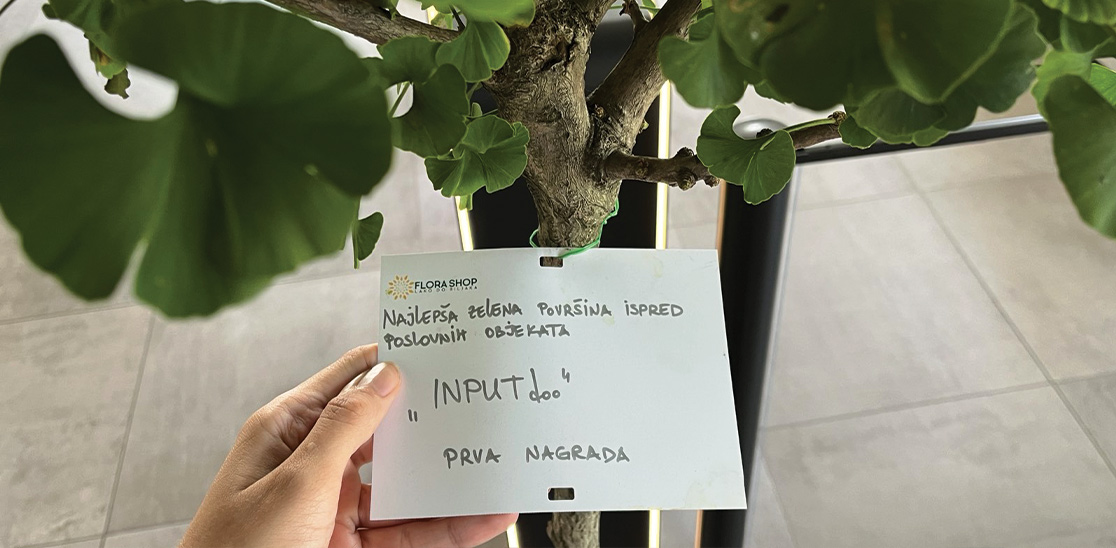 FLORA SHOP
LAKO DO BILJAKA
NAJLEPŠA ZELENA POVRŠINA ISPRED
POSLOVNIH OBJEKATA
„INPUT doo“
PRVA NAGRADA